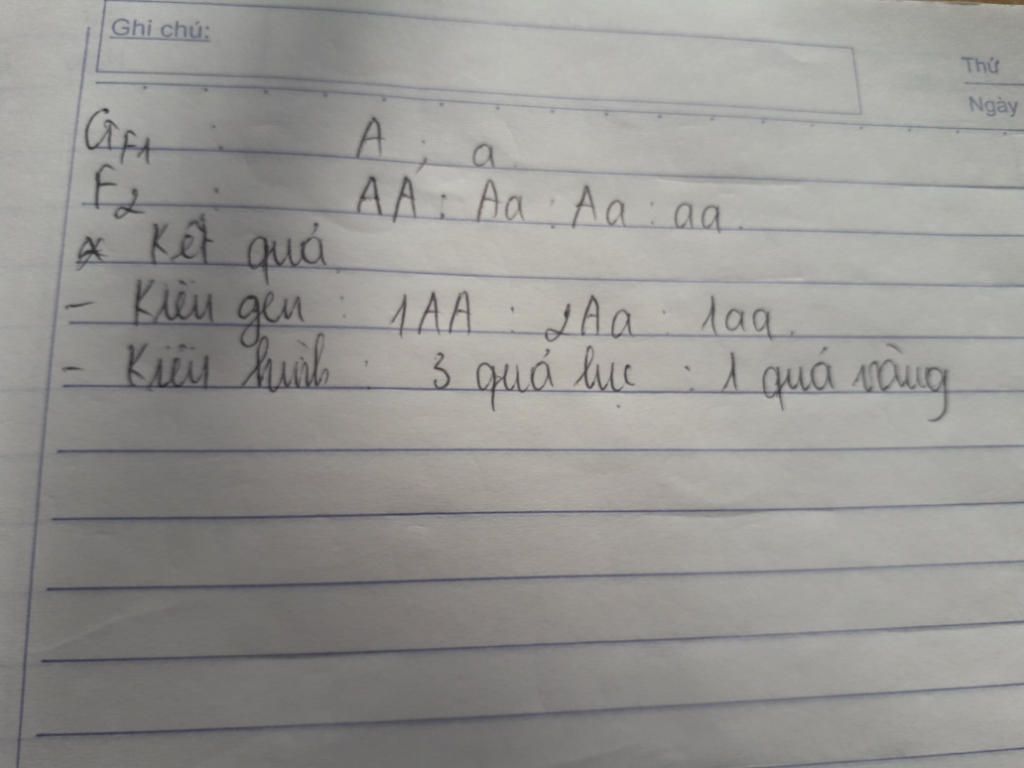 Ghi chú:
Thứ
Ngày
GF1 : A ; a
F2 : AA : Aa : Aa : aa.
* Kết quả
- Kiểu gen : 1AA : 2Aa : 1aa.
- Kiểu hình : 3 quả lục : 1 quả vàng